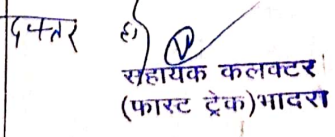 दफ्तर
हो
सहायक कलक्टर
(फास्ट ट्रेक)भादरा